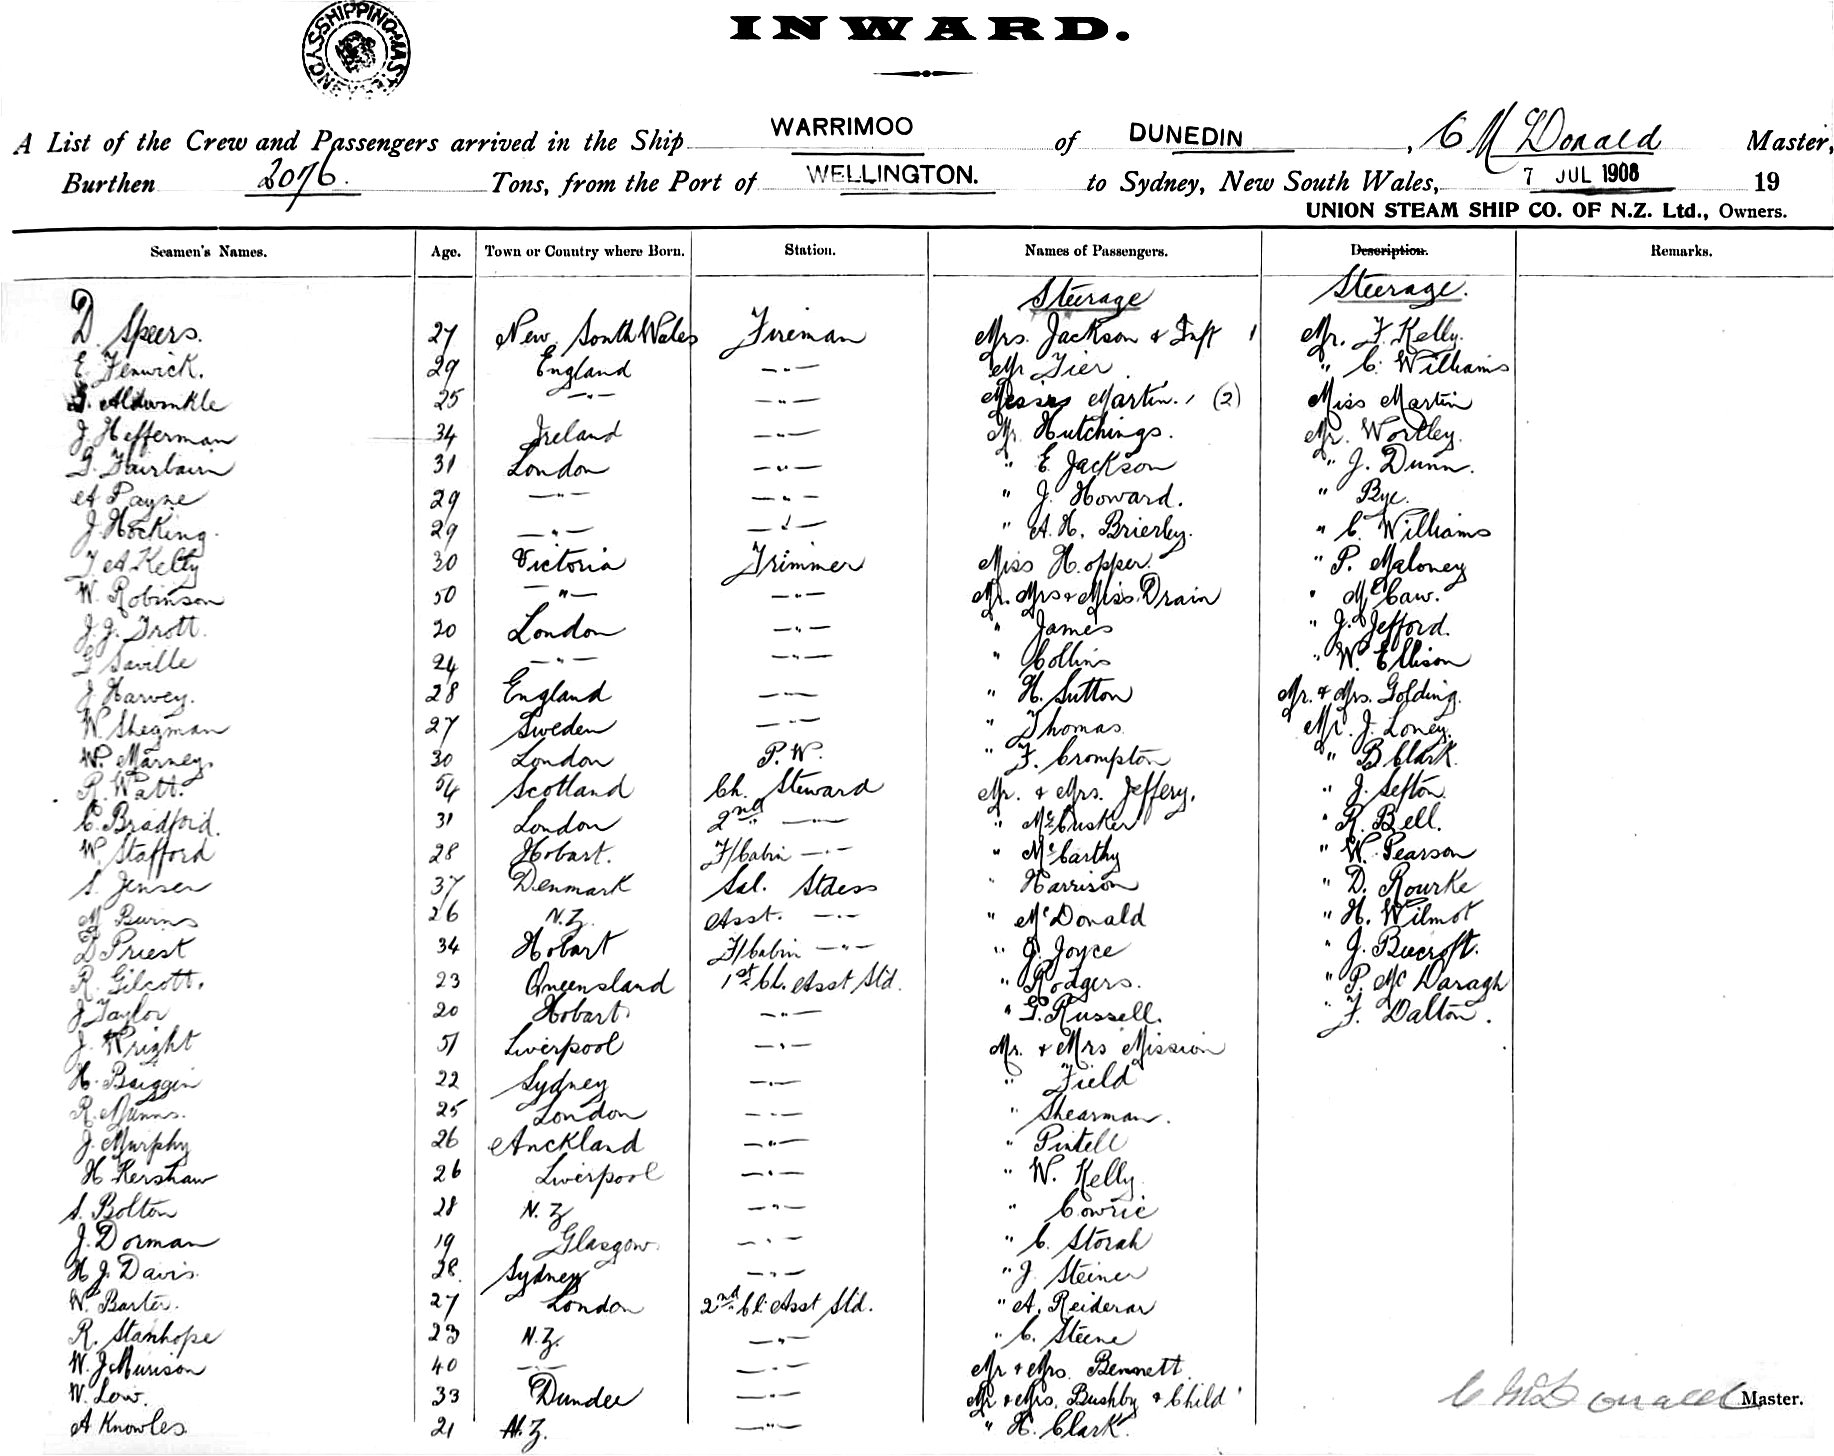 SHIPPING MAST
INWARD.
A List of the Crew and Passengers arrived in the Ship WARRIMOO of DUNEDIN, C McDonald Master,
Burthen 2076. Tons, from the Port of WELLINGTON. to Sydney, New South Wales, 7 JUL 1908 19
UNION STEAM SHIP CO. OF N.Z. Ltd., Owners.
Seamen's Names. Age. Town or Country where Born. Station. Names of Passengers. Description. Remarks.
Steerage Steerage.
D Speers. 27 New South Wales Fireman Mrs. Jackson & Inft 1 Mr. F. Kelly.
E. Fenwick. 29 England —"— Mr Tier " C. Williams
Aldwinkle 25 —"— —"— Misses Martin. (2) Miss Martin
J. Hefferman 34 Ireland —"— Mr. Hutchings. Mr. Wortley.
G. Fairbairn 31 London —"— " E. Jackson " J. Dunn.
A Payne 29 —"— —"— " J. Howard. " Bye.
J. Hocking. 29 —"— —"— " A. H. Brierley. " C. Williams
T A Kelly 30 Victoria Trimmer Miss Hopper. " P. Maloney
W. Robinson 50 —"— —"— Mr. Mrs & Miss Drain " McCaw.
J. J. Trott. 20 London —"— " James " J. Jefford.
G Saville 24 —"— —"— " Collins " W. Ellison
J. Harvey. 28 England —"— " H. Sutton Mr. & Mrs. Golding.
W. Shegman 27 Sweden —"— " Thomas Mr. J. Loney.
W. Marney. 30 London P.W. " F. Crompton " B Clark.
R. Watt. 54 Scotland Ch. Steward Mr. & Mrs. Jeffery. " J. Sefton.
C. Bradford. 31 London 2nd " — " McCusker " R. Bell.
W. Stafford 28 Hobart. F/Cabin —"— " McCarthy " W. Pearson
S. Jensen 37 Denmark Sal. Stdess " Harrison " D. Rourke
M Burns 26 N.Z. Asst. —"— " McDonald " H. Wilmot
D Priest 34 Hobart F/Cabin —"— " J. Joyce " J. Beecroft.
R. Gilcott. 23 Queensland 1st Cl. Asst Std. " Rodgers. " P. Mc Daragh
J Taylor 20 Hobart —"— " G. Russell. " F. Dalton.
J. Wright 51 Liverpool —"— Mr. & Mrs Mission
H. Baiggin 22 Sydney —"— " Field
R. Munns. 25 London —"— " Shearman.
J. Murphy 26 Auckland —"— " Pintell
H Kershaw 26 Liverpool —"— " W. Kelly
S. Bolton 28 N.Z —"— " Cowrie
J. Dorman 19 Glasgow. —"— " C. Storah
H J. Davis. 28. Sydney —"— " J. Steiner
W. Barter. 27 London 2nd Cl. Asst Std. " A. Reiderar
R. Stanhope 23 N.Z. —"— " C. Steene
W. J. Murison 40 —"— —"— Mr & Mrs. Bennett
W. Low. 33 Dundee —"— Mr & Mrs. Bushby & Child
A Knowles 21 N.Z. —"— " H. Clark.
C McDonald Master.